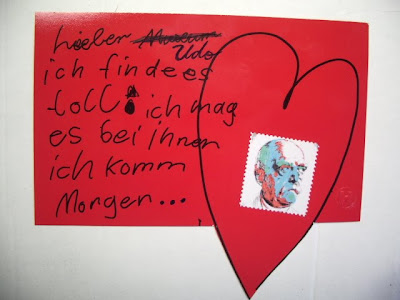 Lieber Museum
Udo
ich finde es
toll! ich mag
es bei Ihnen
ich komm
Morgen...